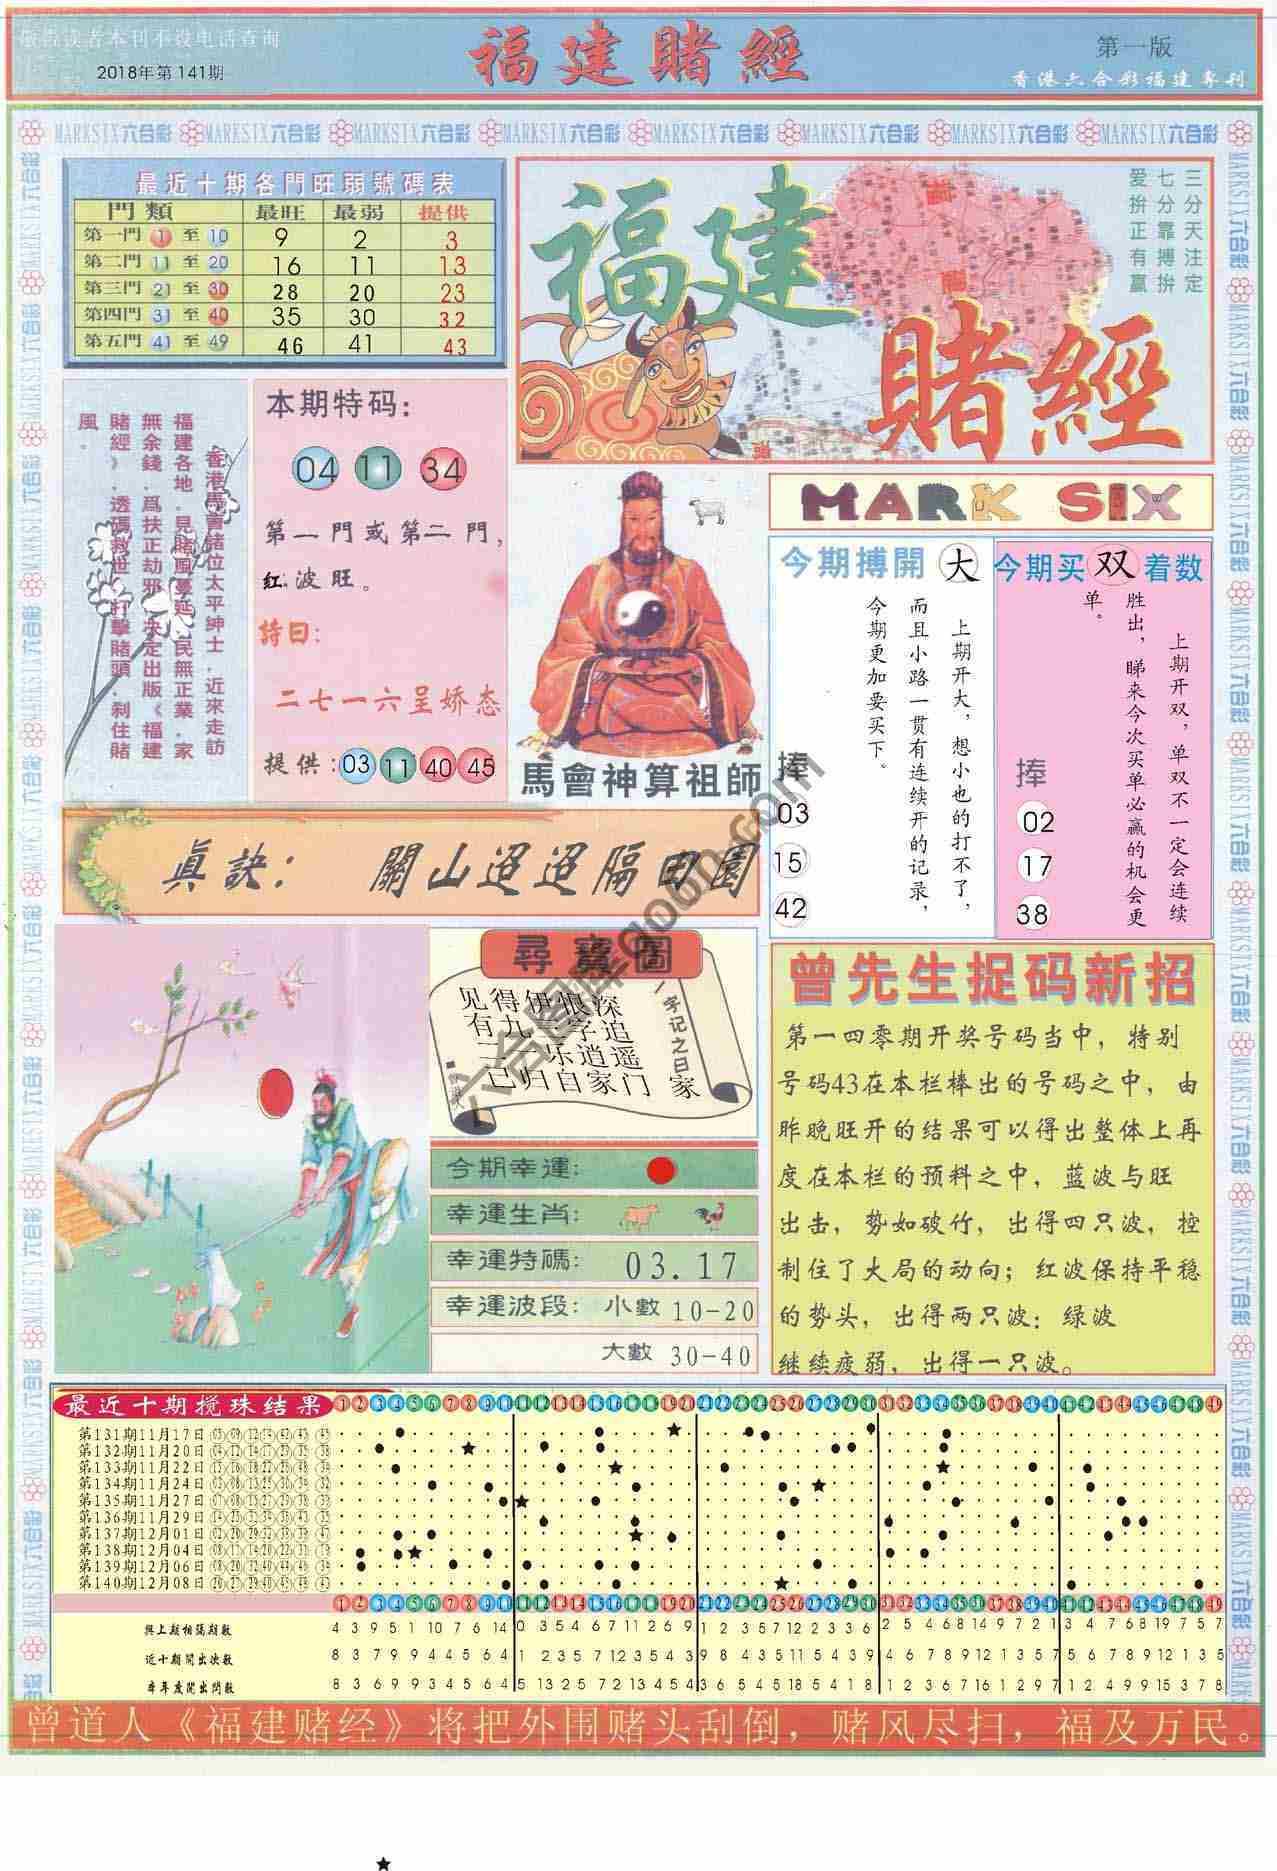 敬告读者本刊不设电话查询
2018年第141期
福建賭經
第一版
香港六合彩福建專刊
MARKSIX六合彩 MARKSIX六合彩 MARKSIX六合彩 MARKSIX六合彩 MARKSIX六合彩 MARKSIX六合彩 MARKSIX六合彩 MARKSIX六合彩
最近十期各門旺弱號碼表
門類 最旺 最弱 提供
第一門 1 至 10 9 2 3
第二門 11 至 20 16 11 13
第三門 21 至 30 28 20 23
第四門 31 至 40 35 30 32
第五門 41 至 49 46 41 43
福建
賭經
三分天注定
七分靠搏拚
爱拚正有赢
香港馬會諸位太平紳士．近來走訪
福建各地．見賭風蔓延．民無正業．家
無余錢．爲扶正劫邪．決定出版《福建
賭經》．透碼救世．打擊賭頭．刹住賭
風．
本期特码：
04 11 34
第一門或第二門，
红波旺。
詩曰：
二七一六呈娇态
提供：03 11 40 45
馬會神算祖師
MARK SIX
今期搏開 大
上期开大，想小也的打不了，
而且小路一贯有连续开的记录，
今期更加要买下。
捧
03
15
42
今期买 双 着数
上期开双，单双不一定会连续
胜出，睇来今次买单必赢的机会更
单。
捧
02
17
38
真訣： 關山迢迢隔田園
尋寶圖
一字记之曰 家
见得伊狼深
有九三字追
三二乐逍遥
已归自家门
今期幸運：
幸運生肖：
幸運特碼： 03.17
幸運波段： 小數 10-20
大數 30-40
曾先生捉码新招
第一四零期开奖号码当中，特别
号码43在本栏棒出的号码之中，由
昨晚旺开的结果可以得出整体上再
度在本栏的预料之中，蓝波与旺
出击，势如破竹，出得四只波，控
制住了大局的动向；红波保持平稳
的势头，出得两只波；绿波
继续疲弱，出得一只波。
最近十期搅珠结果
1 2 3 4 5 6 7 8 9 10 11 12 13 14 15 16 17 18 19 20 21 22 23 24 25 26 27 28 29 30 31 32 33 34 35 36 37 38 39 40 41 42 43 44 45 46 47 48 49
第131期11月17日
第132期11月20日
第133期11月22日
第134期11月24日
第135期11月27日
第136期11月29日
第137期12月01日
第138期12月04日
第139期12月06日
第140期12月08日
1 2 3 4 5 6 7 8 9 10 11 12 13 14 15 16 17 18 19 20 21 22 23 24 25 26 27 28 29 30 31 32 33 34 35 36 37 38 39 40 41 42 43 44 45 46 47 48 49
與上期相隔期數
近十期開出次數
本年度開出期數
曾道人《福建赌经》将把外围赌头刮倒，赌风尽扫，福及万民。
六合图库qoon.com